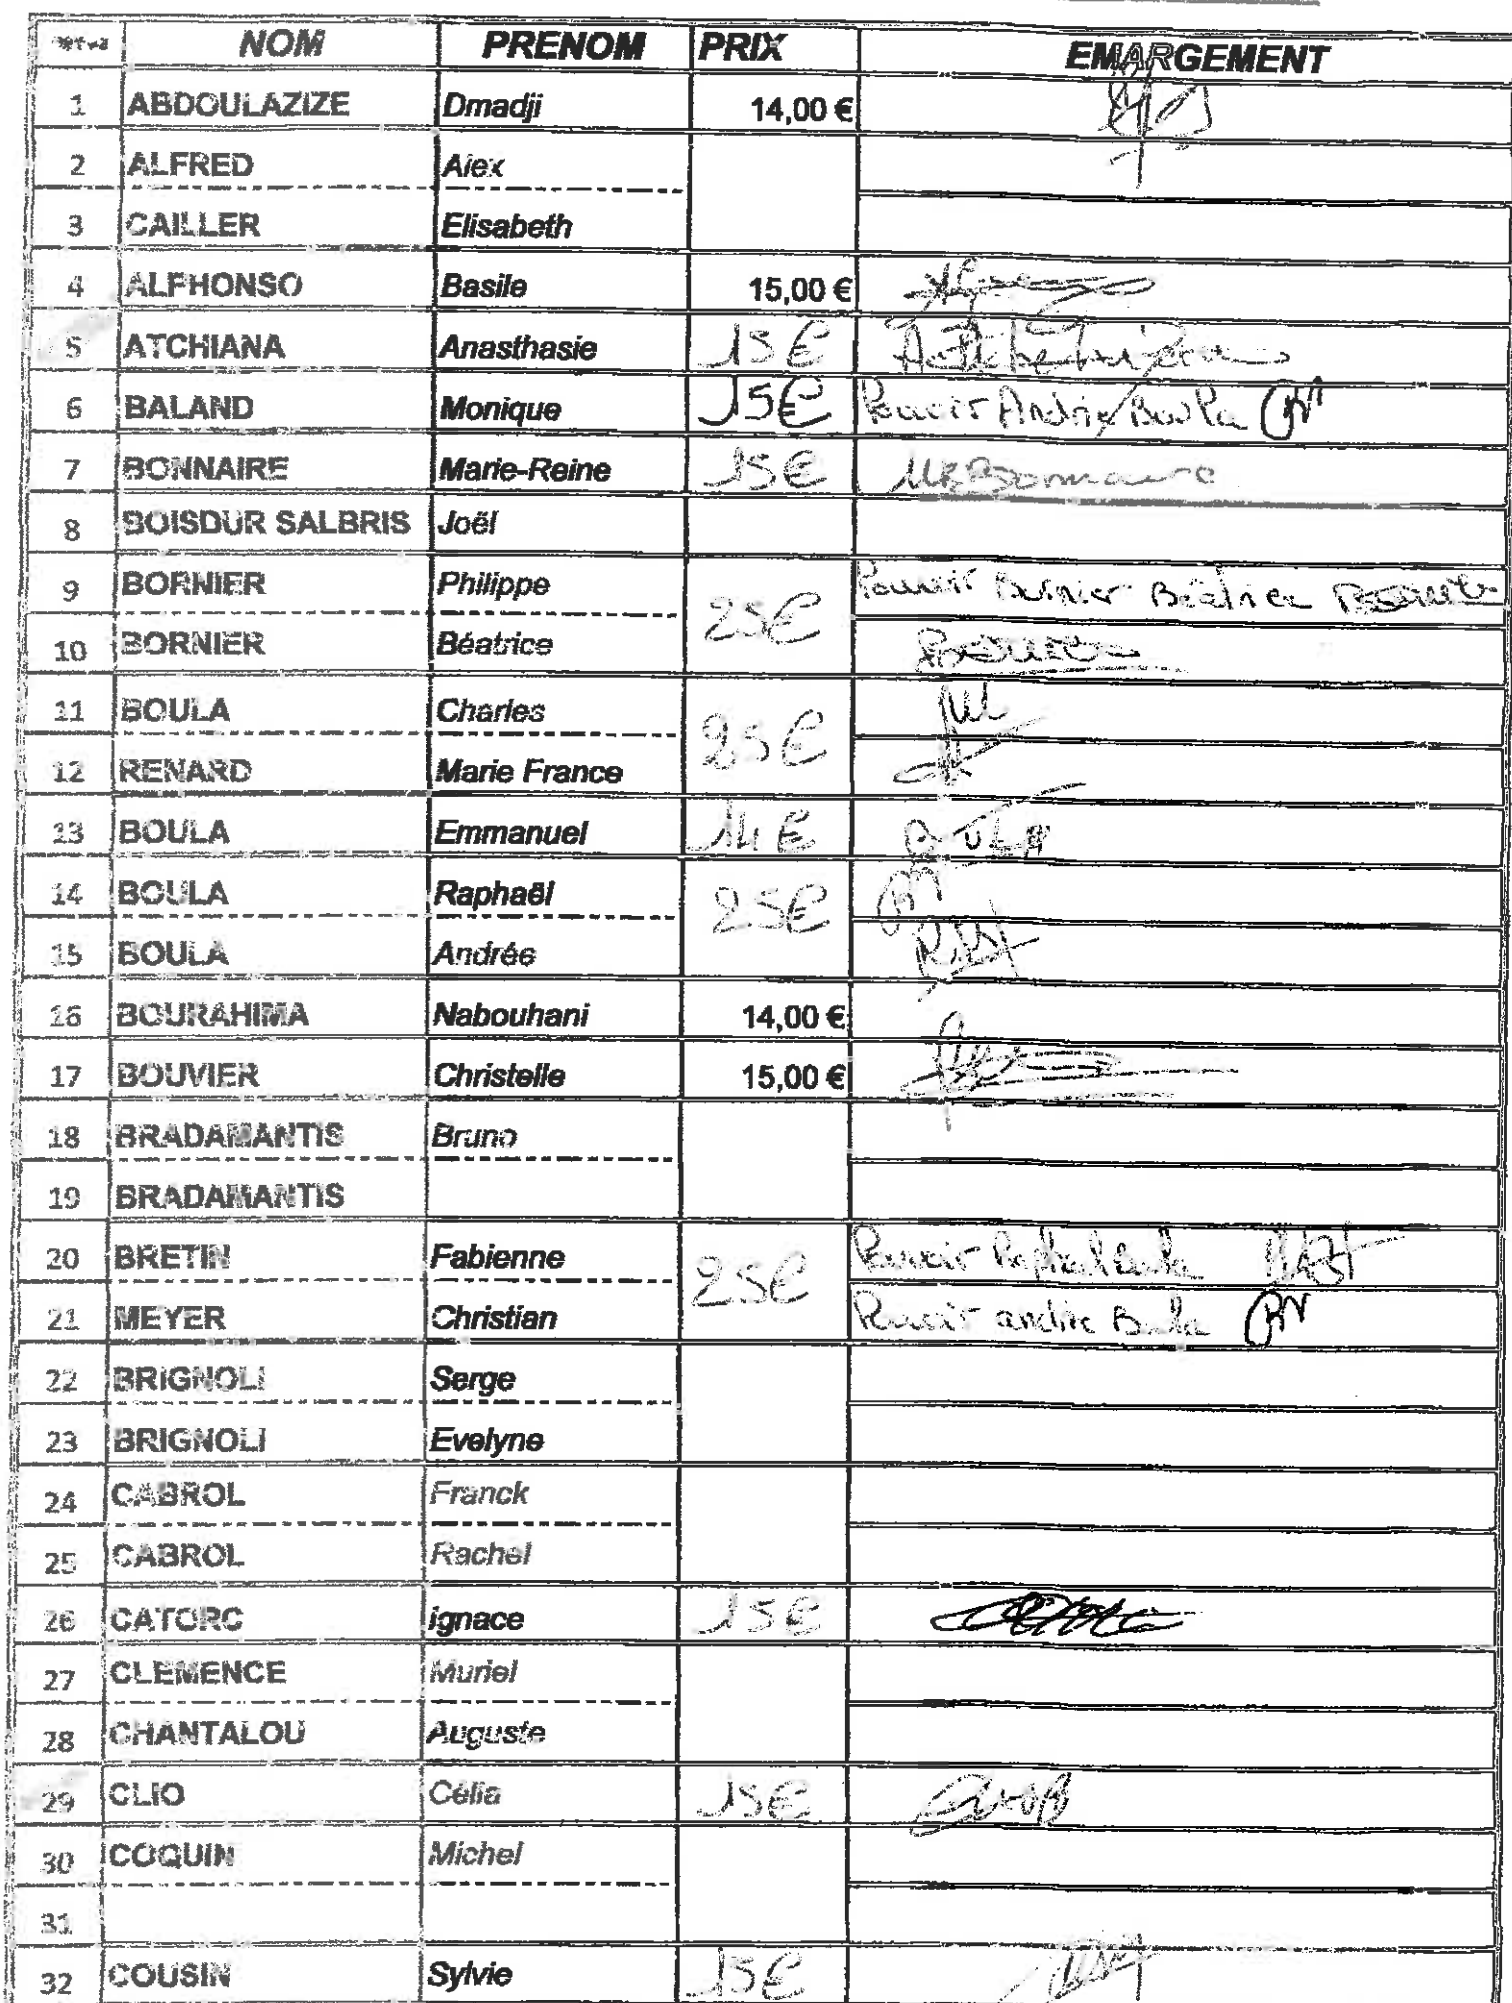 NOM PRENOM PRIX EMARGEMENT
1 ABDOULAZIZE Dmadji 14,00 €
2 ALFRED Alex
3 CAILLER Elisabeth
4 ALPHONSO Basile 15,00 €
5 ATCHIANA Anasthasie 15€
6 BALAND Monique 15€ Pouvoir Andrée Boula
7 BONNAIRE Marie-Reine 15€ MRBonnaire
8 BOISDUR SALBRIS Joël
9 BORNIER Philippe Pouvoir Bornier Béatrice
25€
10 BORNIER Béatrice
11 BOULA Charles
25€
12 RENARD Marie France
13 BOULA Emmanuel 14€ BOULA
14 BOULA Raphaël 25€
15 BOULA Andrée
16 BOURAHIMA Nabouhani 14,00 €
17 BOUVIER Christelle 15,00 €
18 BRADAMANTIS Bruno
19 BRADAMANTIS
20 BRETIN Fabienne 25€ Pouvoir Raphael Boula
21 MEYER Christian Pouvoir andrée Boula
22 BRIGNOLI Serge
23 BRIGNOLI Evelyne
24 CABROL Franck
25 CABROL Rachel
26 CATORC ignace 15€
27 CLEMENCE Muriel
28 CHANTALOU Auguste
29 CLIO Célia 15€
30 COQUIN Michel
31
32 COUSIN Sylvie 15€